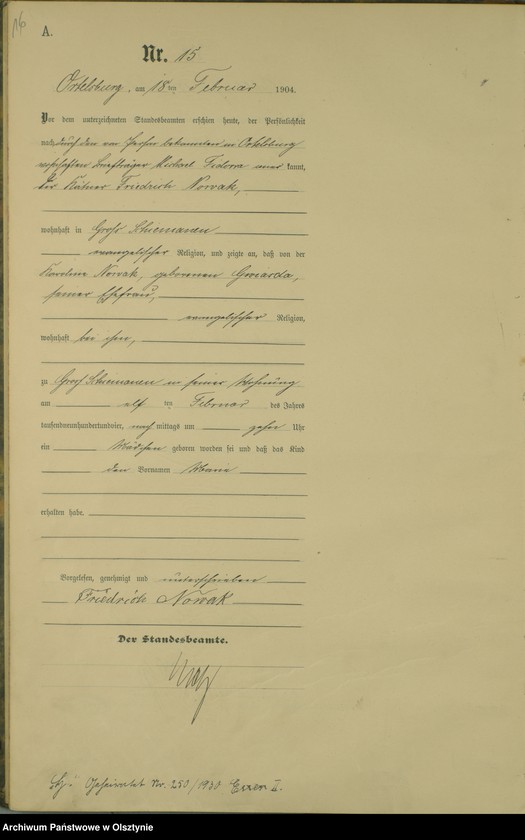 16
A.
Nr. 15
Ortelsburg, am 18ten Februar 1904.
Vor dem unterzeichneten Standesbeamten erschien heute, der Persönlichkeit
nach durch den von Person bekannten in Ortelsburg
wohnhaften Briefträger Michael Fidorra anerkannt,
der Kätner Friedrich Nowak,
wohnhaft in Groß Schiemanen
evangelischer Religion, und zeigte an, daß von der
Karoline Nowak, geborenen Gwiasda,
seiner Ehefrau,
evangelischer Religion,
wohnhaft bei ihm,
zu Groß Schiemanen in seiner Wohnung
am elf ten Februar des Jahres
tausendneunhundertundvier, nach mittags um zehn Uhr
ein Mädchen geboren worden sei und daß das Kind
den Vornamen Marie
erhalten habe.
Vorgelesen, genehmigt und unterschrieben
Friedrich Nowak
Der Standesbeamte.
Geheiratet Nr. 250/1930 Essen II.
Archiwum Państwowe w Olsztynie